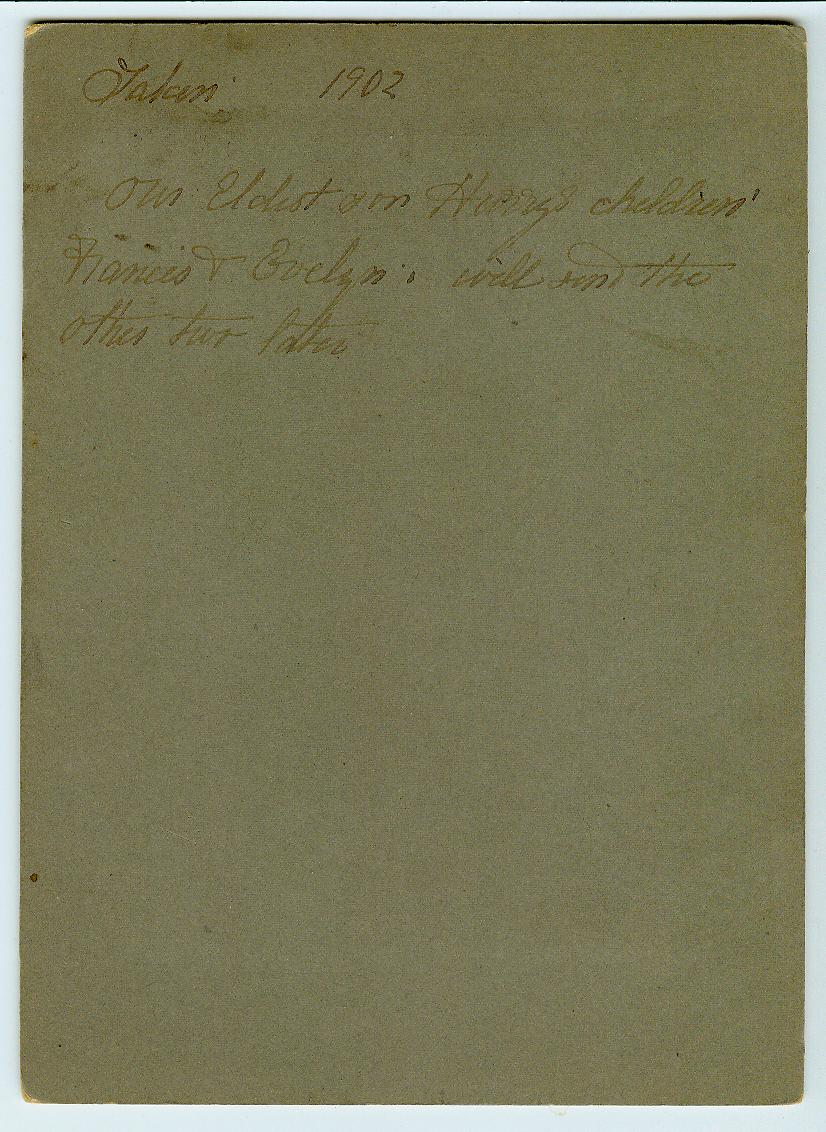 Taken 1902
Our Eldest son Harry's children
Frances & Evelyn. will send the
other two later